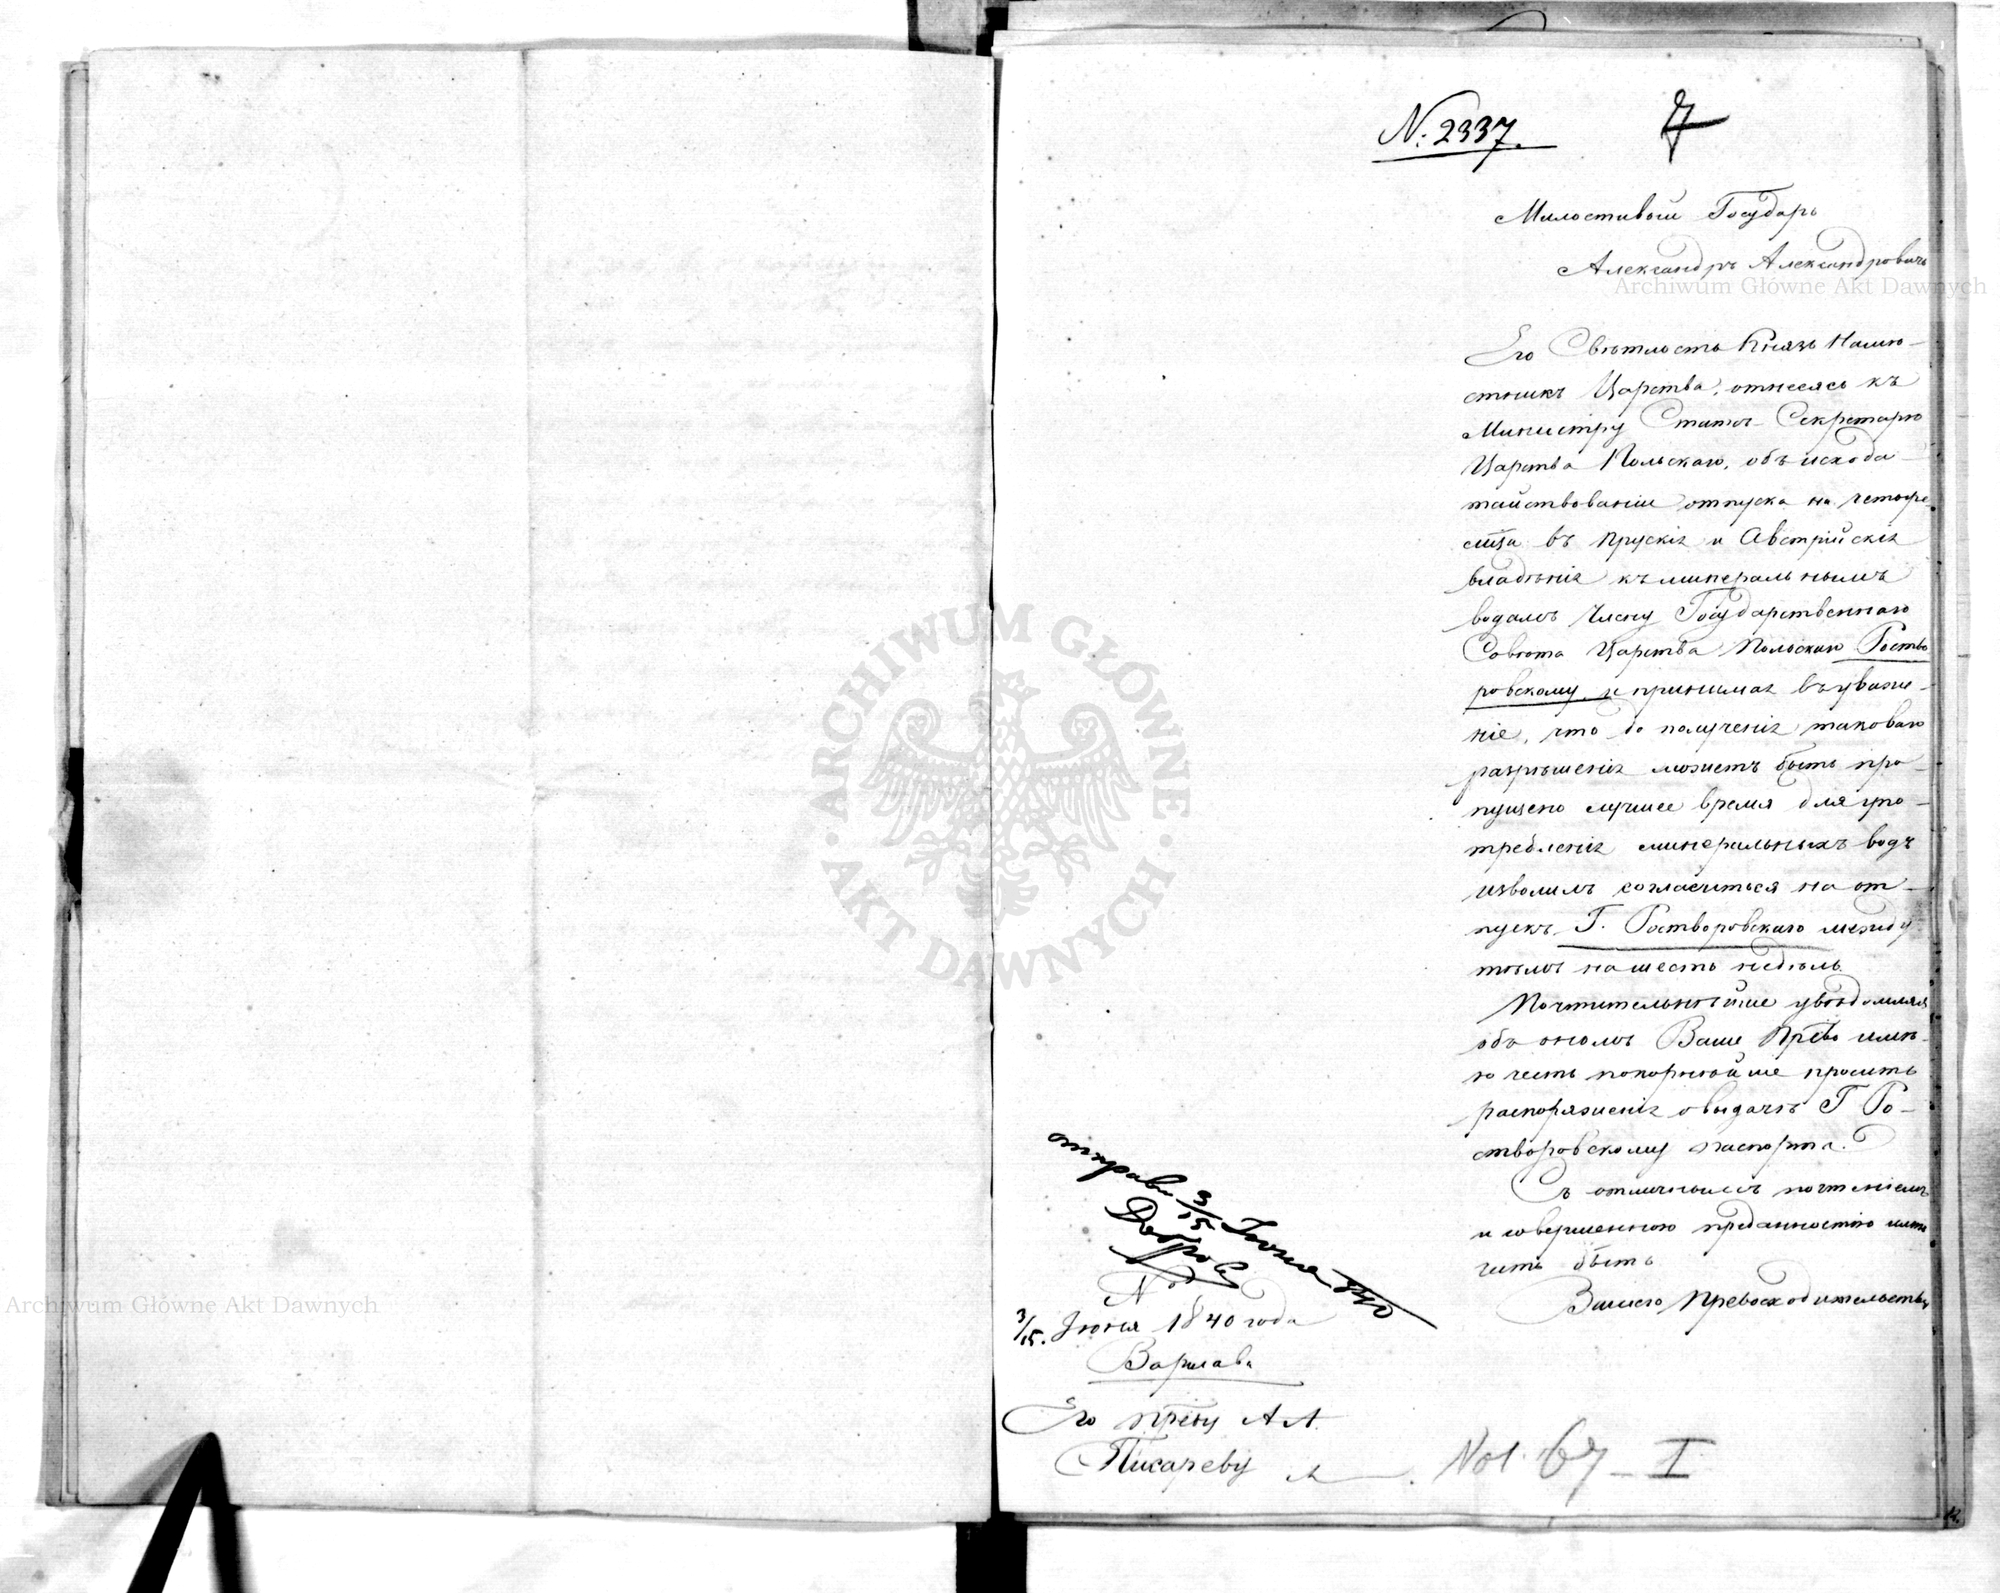 N: 2337.
7
Милостивый Государь
Александръ Александровичь
Его Свѣтлость Князь Намѣ-
стникъ Царства, отнесясь къ
Министру Статсъ-Секретарю
Царства Польскаго, объ исхода-
тайствованіи отпуска на четыре
мѣсяца въ Прускія и Австрійскія
владѣнія къ минеральнымъ
водамъ Члену Государственнаго
Совѣта Царства Польскаго Роство
ровскому, и принимая въ уваже-
ніе, что до полученія таковаго
разрѣшенія можетъ быть про-
пущено лучшее время для упо-
требленія минеральныхъ водъ
изволилъ согласиться на от-
пускъ Г. Ростворовскаго между
тѣмъ на шесть недѣль.
Почтительнѣйше увѣдомляя
объ ономъ Ваше Прево имѣ-
ю честь покорнѣйше просить
распоряженія о выдачѣ Г Ро-
створовскому паспорта.
Съ отличнымъ почтеніемъ
и совершенною преданностію имѣю
честь быть
Вашего Превосходительства
3/15 Іюня 1840
N
3/15. Іюня 1840 года
Варшава
Его Преву А А.
Писареву
Vol. 67 - I
Archiwum Główne Akt Dawnych
Archiwum Główne Akt Dawnych
ARCHIWUM GŁÓWNE · AKT DAWNYCH ·